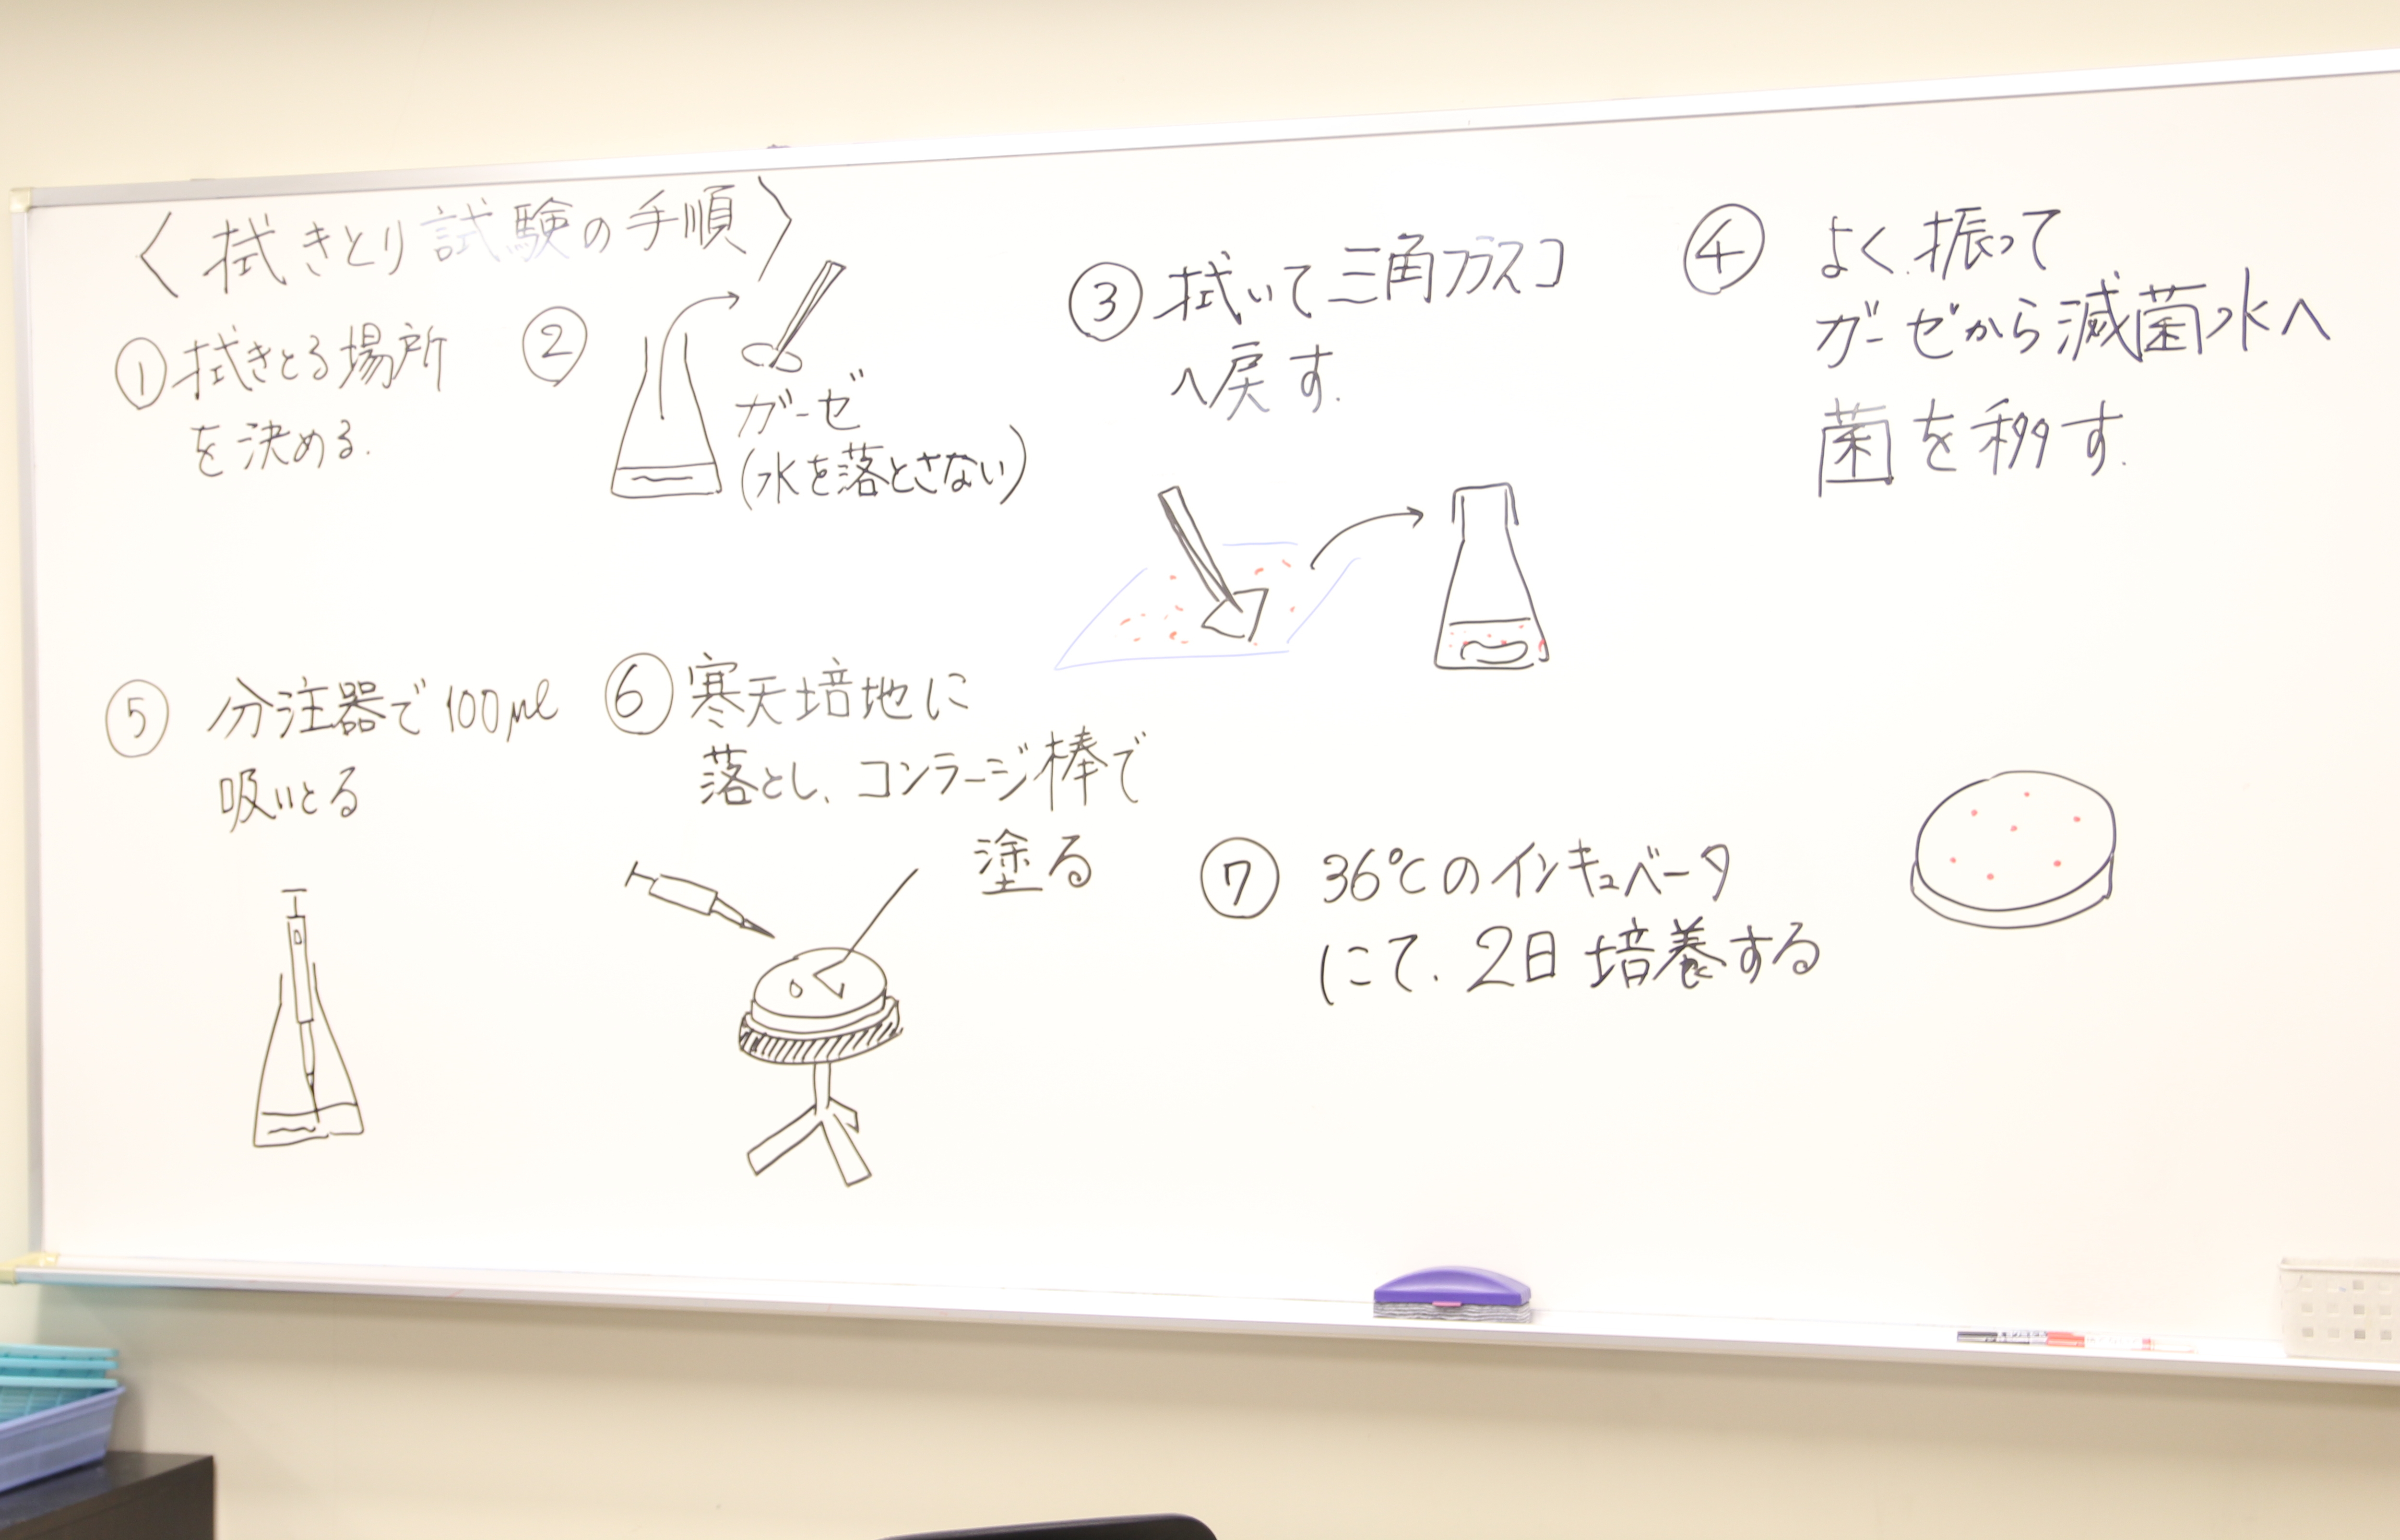 〈拭きとり試験の手順〉
① 拭きとる場所
を決める.
②
ガーゼ
(水を落とさない)
③ 拭いて三角フラスコ
へ戻す.
④ よく振って
ガーゼから滅菌水へ
菌を移す.
⑤ 分注器で100μl
吸いとる
⑥ 寒天培地に
落とし、コンラージ棒で
塗る
⑦ 36℃のインキュベータ
にて、2日培養する